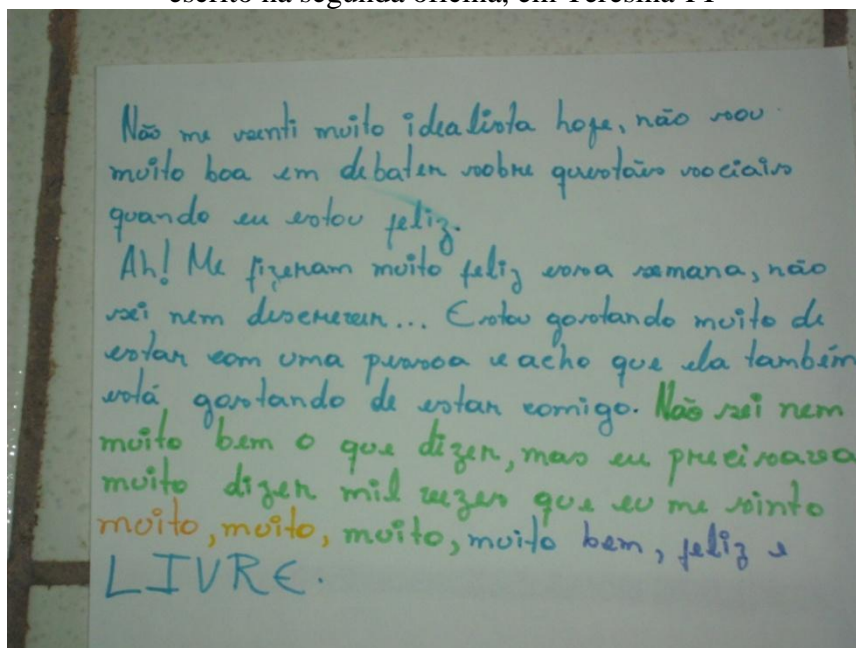 escrito na segunda oficina, em Teresina-PI
Não me senti muito idealista hoje, não sou
muito boa em debater sobre questões sociais
quando eu estou feliz.
Ah! Me fizeram muito feliz essa semana, não
sei nem descrever... Estou gostando muito de
estar com uma pessoa e acho que ela também
está gostando de estar comigo. Não sei nem
muito bem o que dizer, mas eu precisava
muito dizer mil vezes que eu me sinto
muito, muito, muito, muito bem, feliz e
LIVRE.